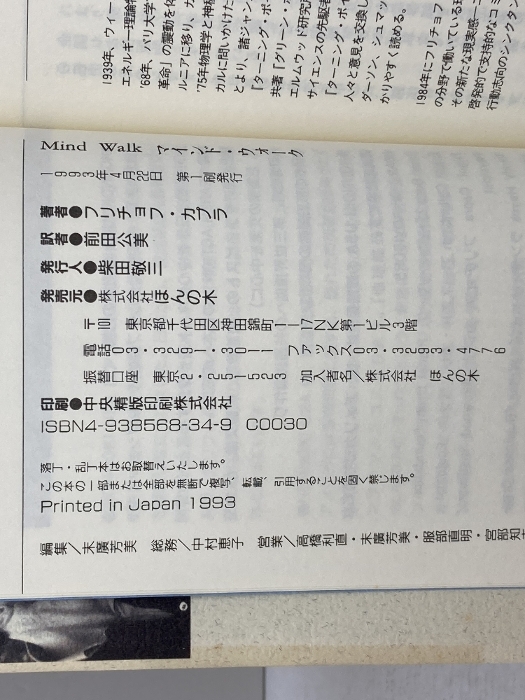 1939年、ウィー
エネルギー理論物
'68年、パリ大学
革命」の震動を体
ルニアに移り、カ
'75年物理学と神秘
カルに問いかけた
とより、諸ジャン
『ターニング・ポイ
共著『グリーン・ポ
エルムウッド研究所
サイエンスの先駆者
『ターニング・ポイ
人々と意見を交換し
ダーソン、シュマッ
かりやすく読める。
1984年にフリチョフ
の分野で働いている
その新たな現実感
啓発的で支持的なコミ
行動志向のシンクタン
Mind Walk マインド・ウォーク
一九九三年4月22日 第1刷発行
著者●フリチョフ・カプラ
訳者●前田公美
発行人●柴田敬三
発売元●株式会社ほんの木
〒101 東京都千代田区神田錦町一ー一七NK第1ビル3階
電話〇三・三二九一・三〇一一 ファックス〇三・三二九三・四七七六
振替口座 東京二・二五一五二三 加入者名／株式会社 ほんの木
印刷●中央精版印刷株式会社
ISBN4-938568-34-9 C0030
落丁・乱丁本はお取替えいたします。
この本の一部または全部を無断で複写、転載、引用することを固く禁じます。
Printed in Japan 1993
編集／末廣芳美 総務／中村恵子 営業／高橋利直・末廣芳美・服部直明・宮部知